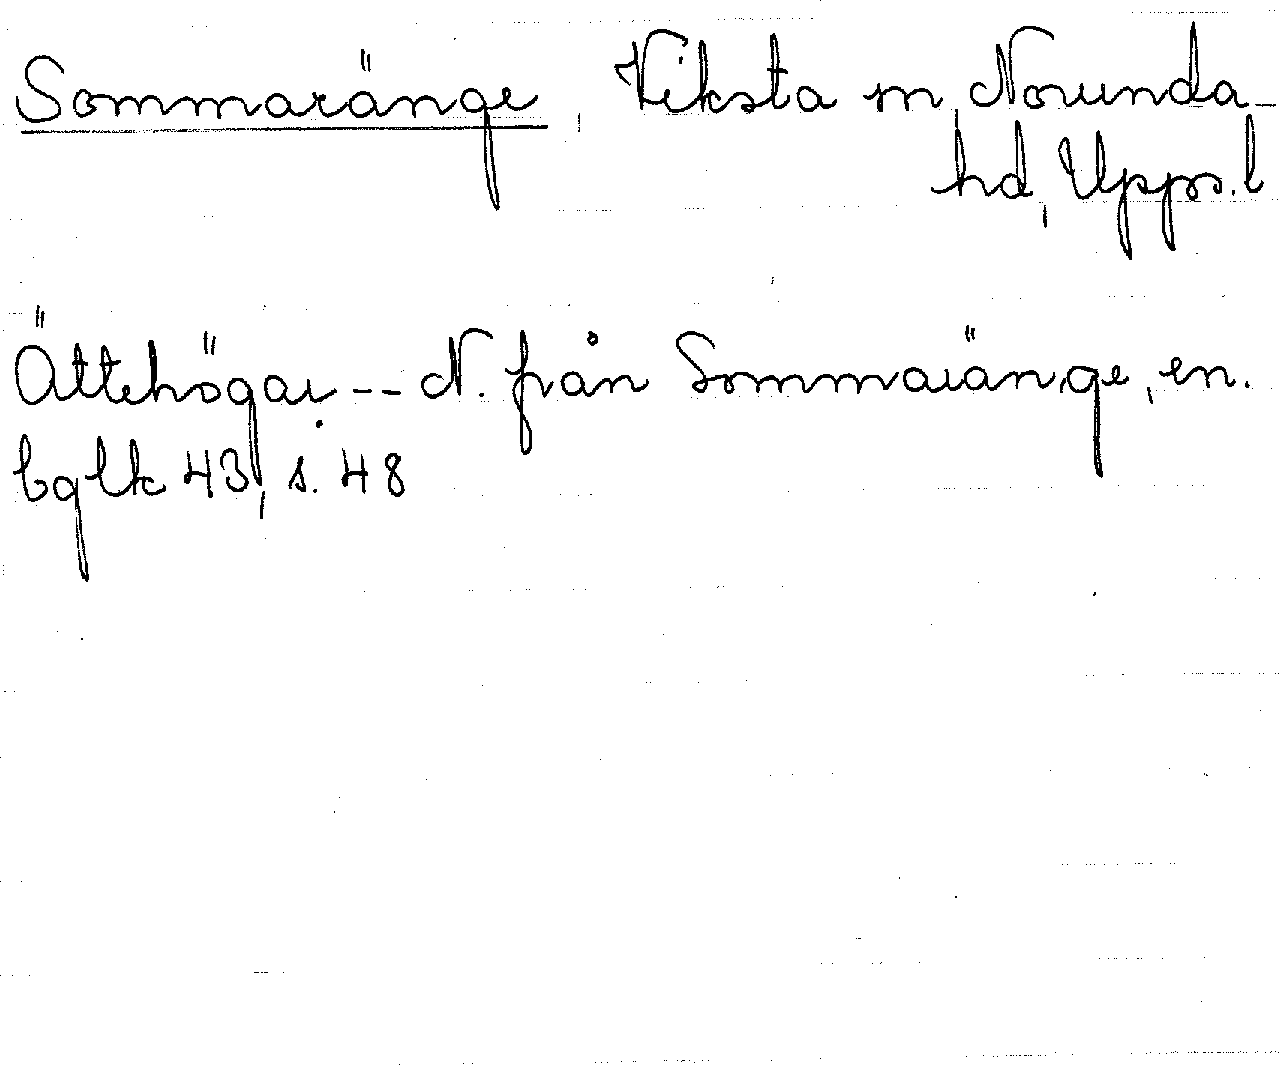 Sommaränge, Viksta sn, Norunda-
hd, Upps.l
Ättehögar -- N. från Sommaränge, en.
bglk 43, s. 48